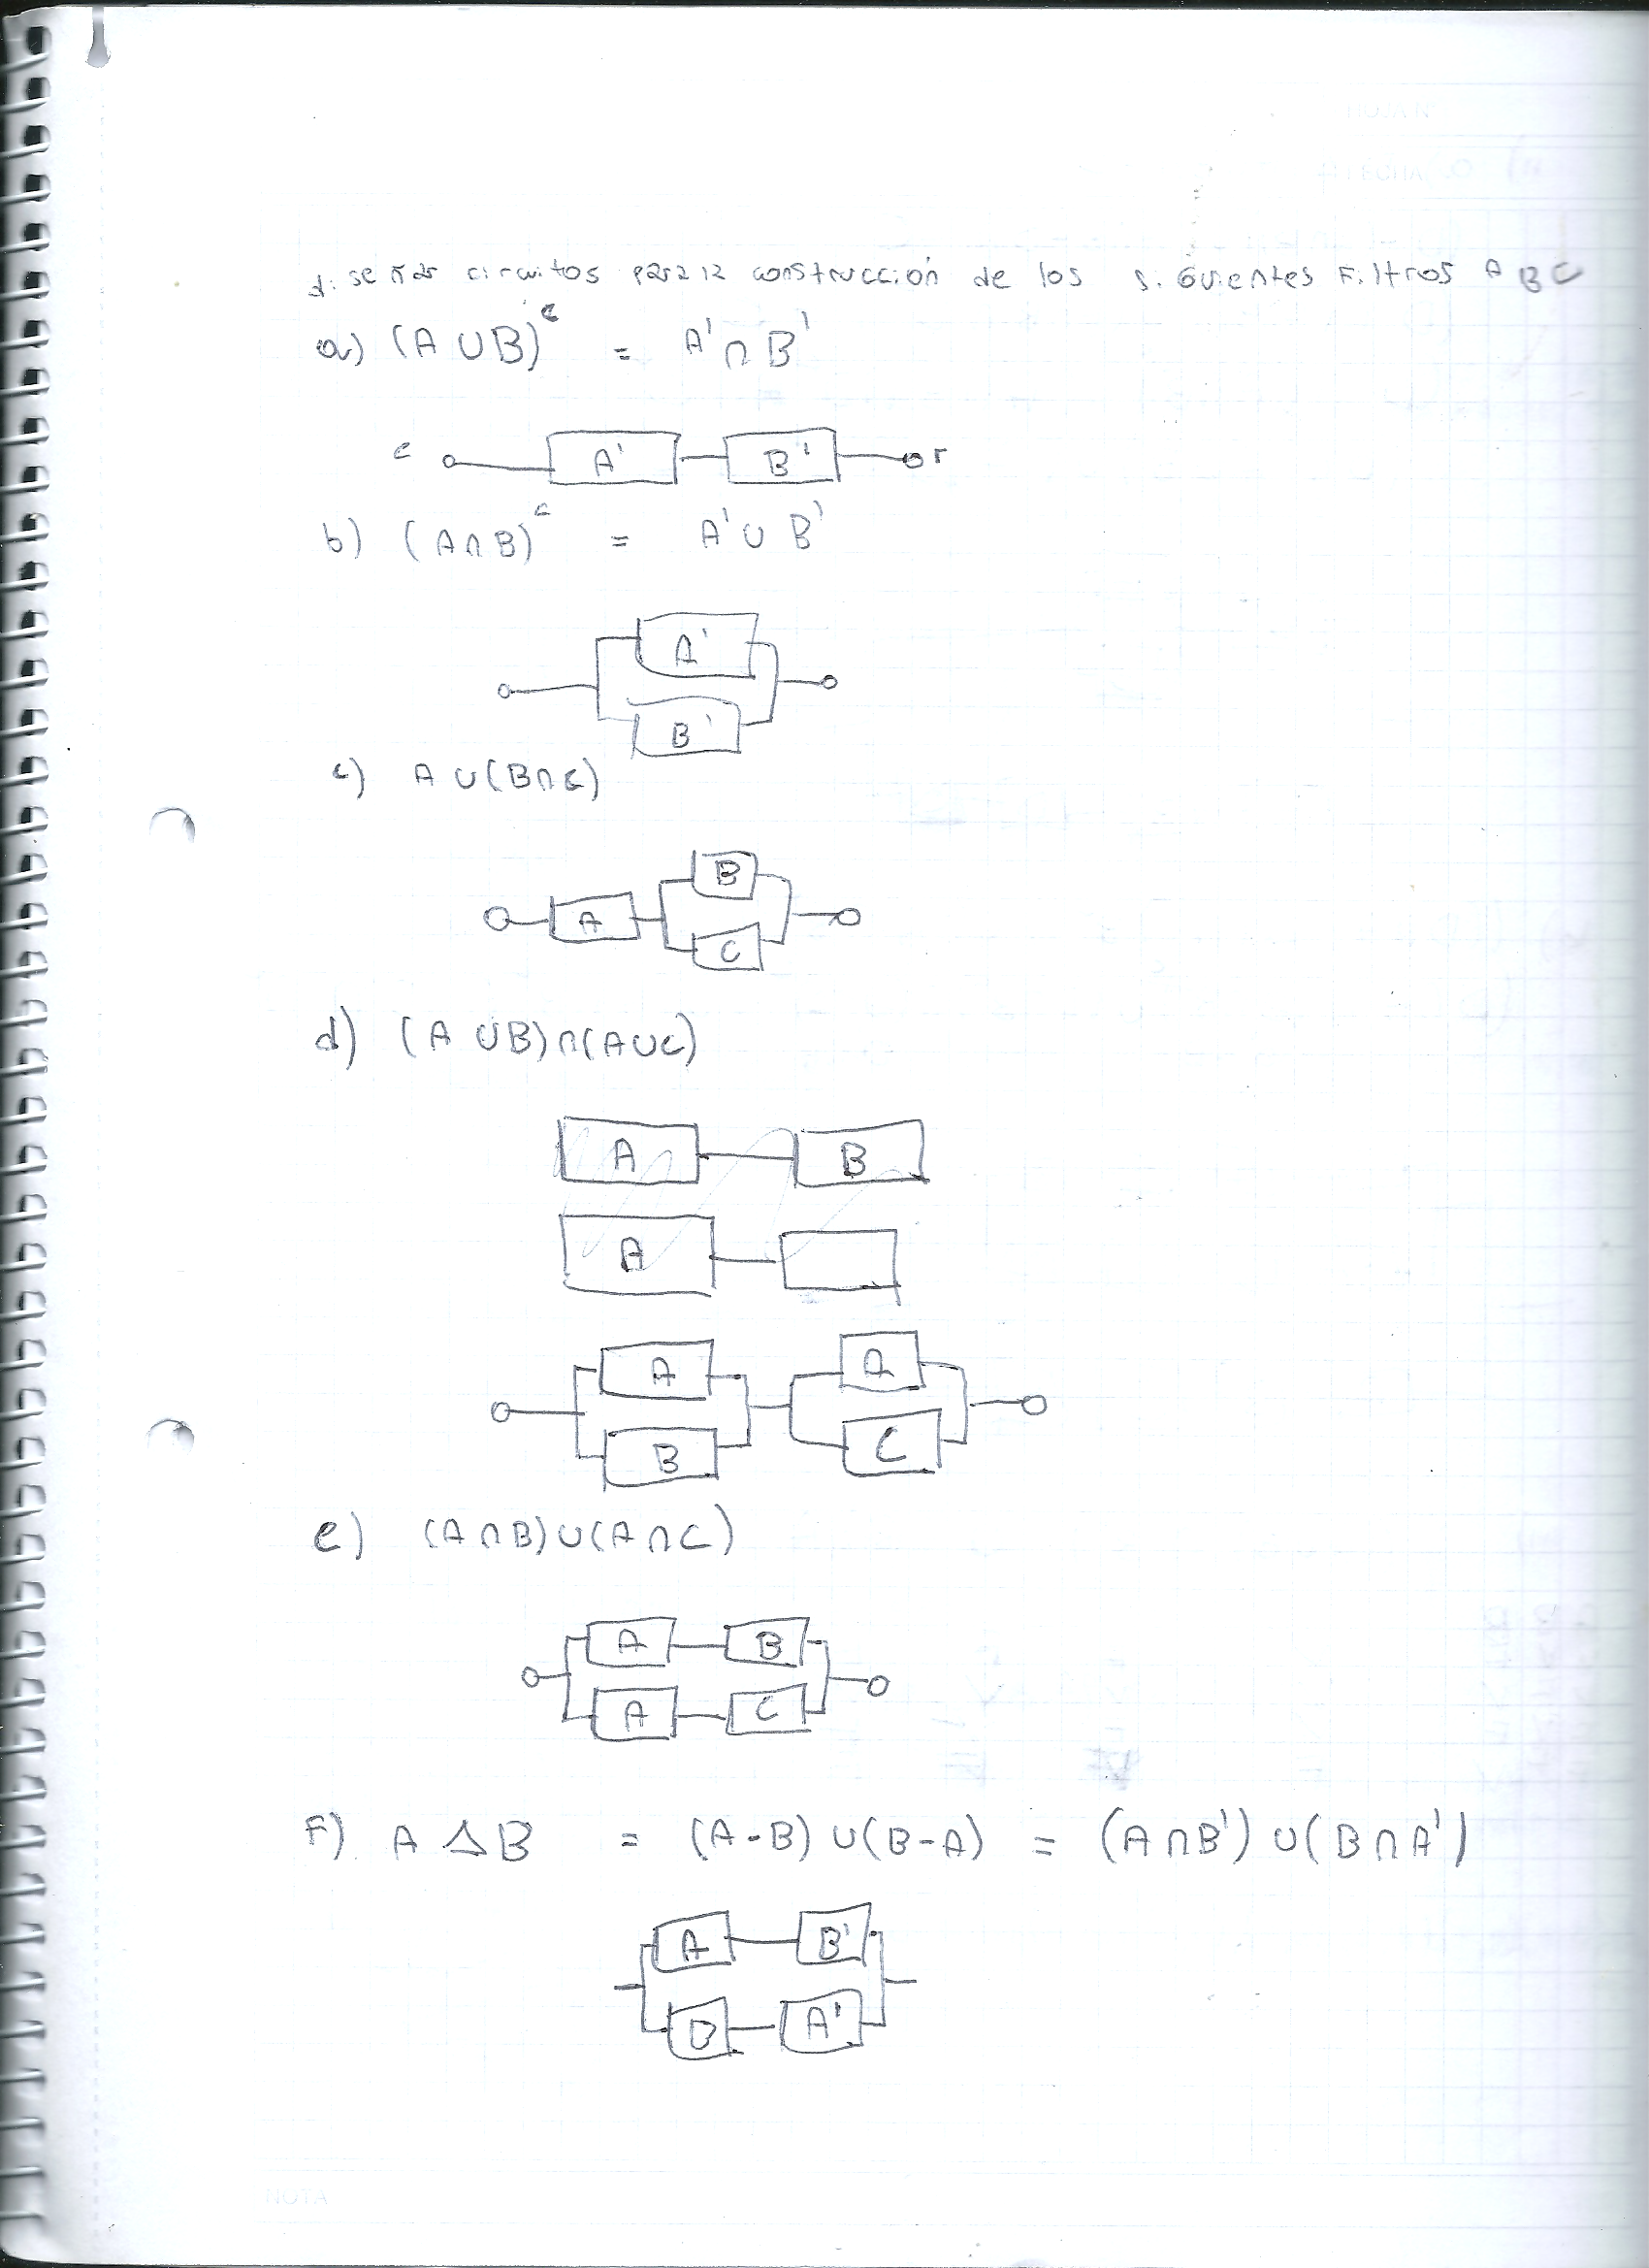 diseñar circuitos para la construcción de los siguientes Filtros A B C
a) (A ∪ B)ᶜ = A' ∩ B'
e A' B' r
b) (A ∩ B)ᶜ = A' ∪ B'
A'
B'
c) A ∪ (B ∩ C)
B
A
C
d) (A ∪ B) ∩ (A ∪ C)
A B
A
A A
B C
e) (A ∩ B) ∪ (A ∩ C)
A B
A C
F) A △ B = (A - B) ∪ (B - A) = (A ∩ B') ∪ (B ∩ A')
A B'
B A'
NOTA